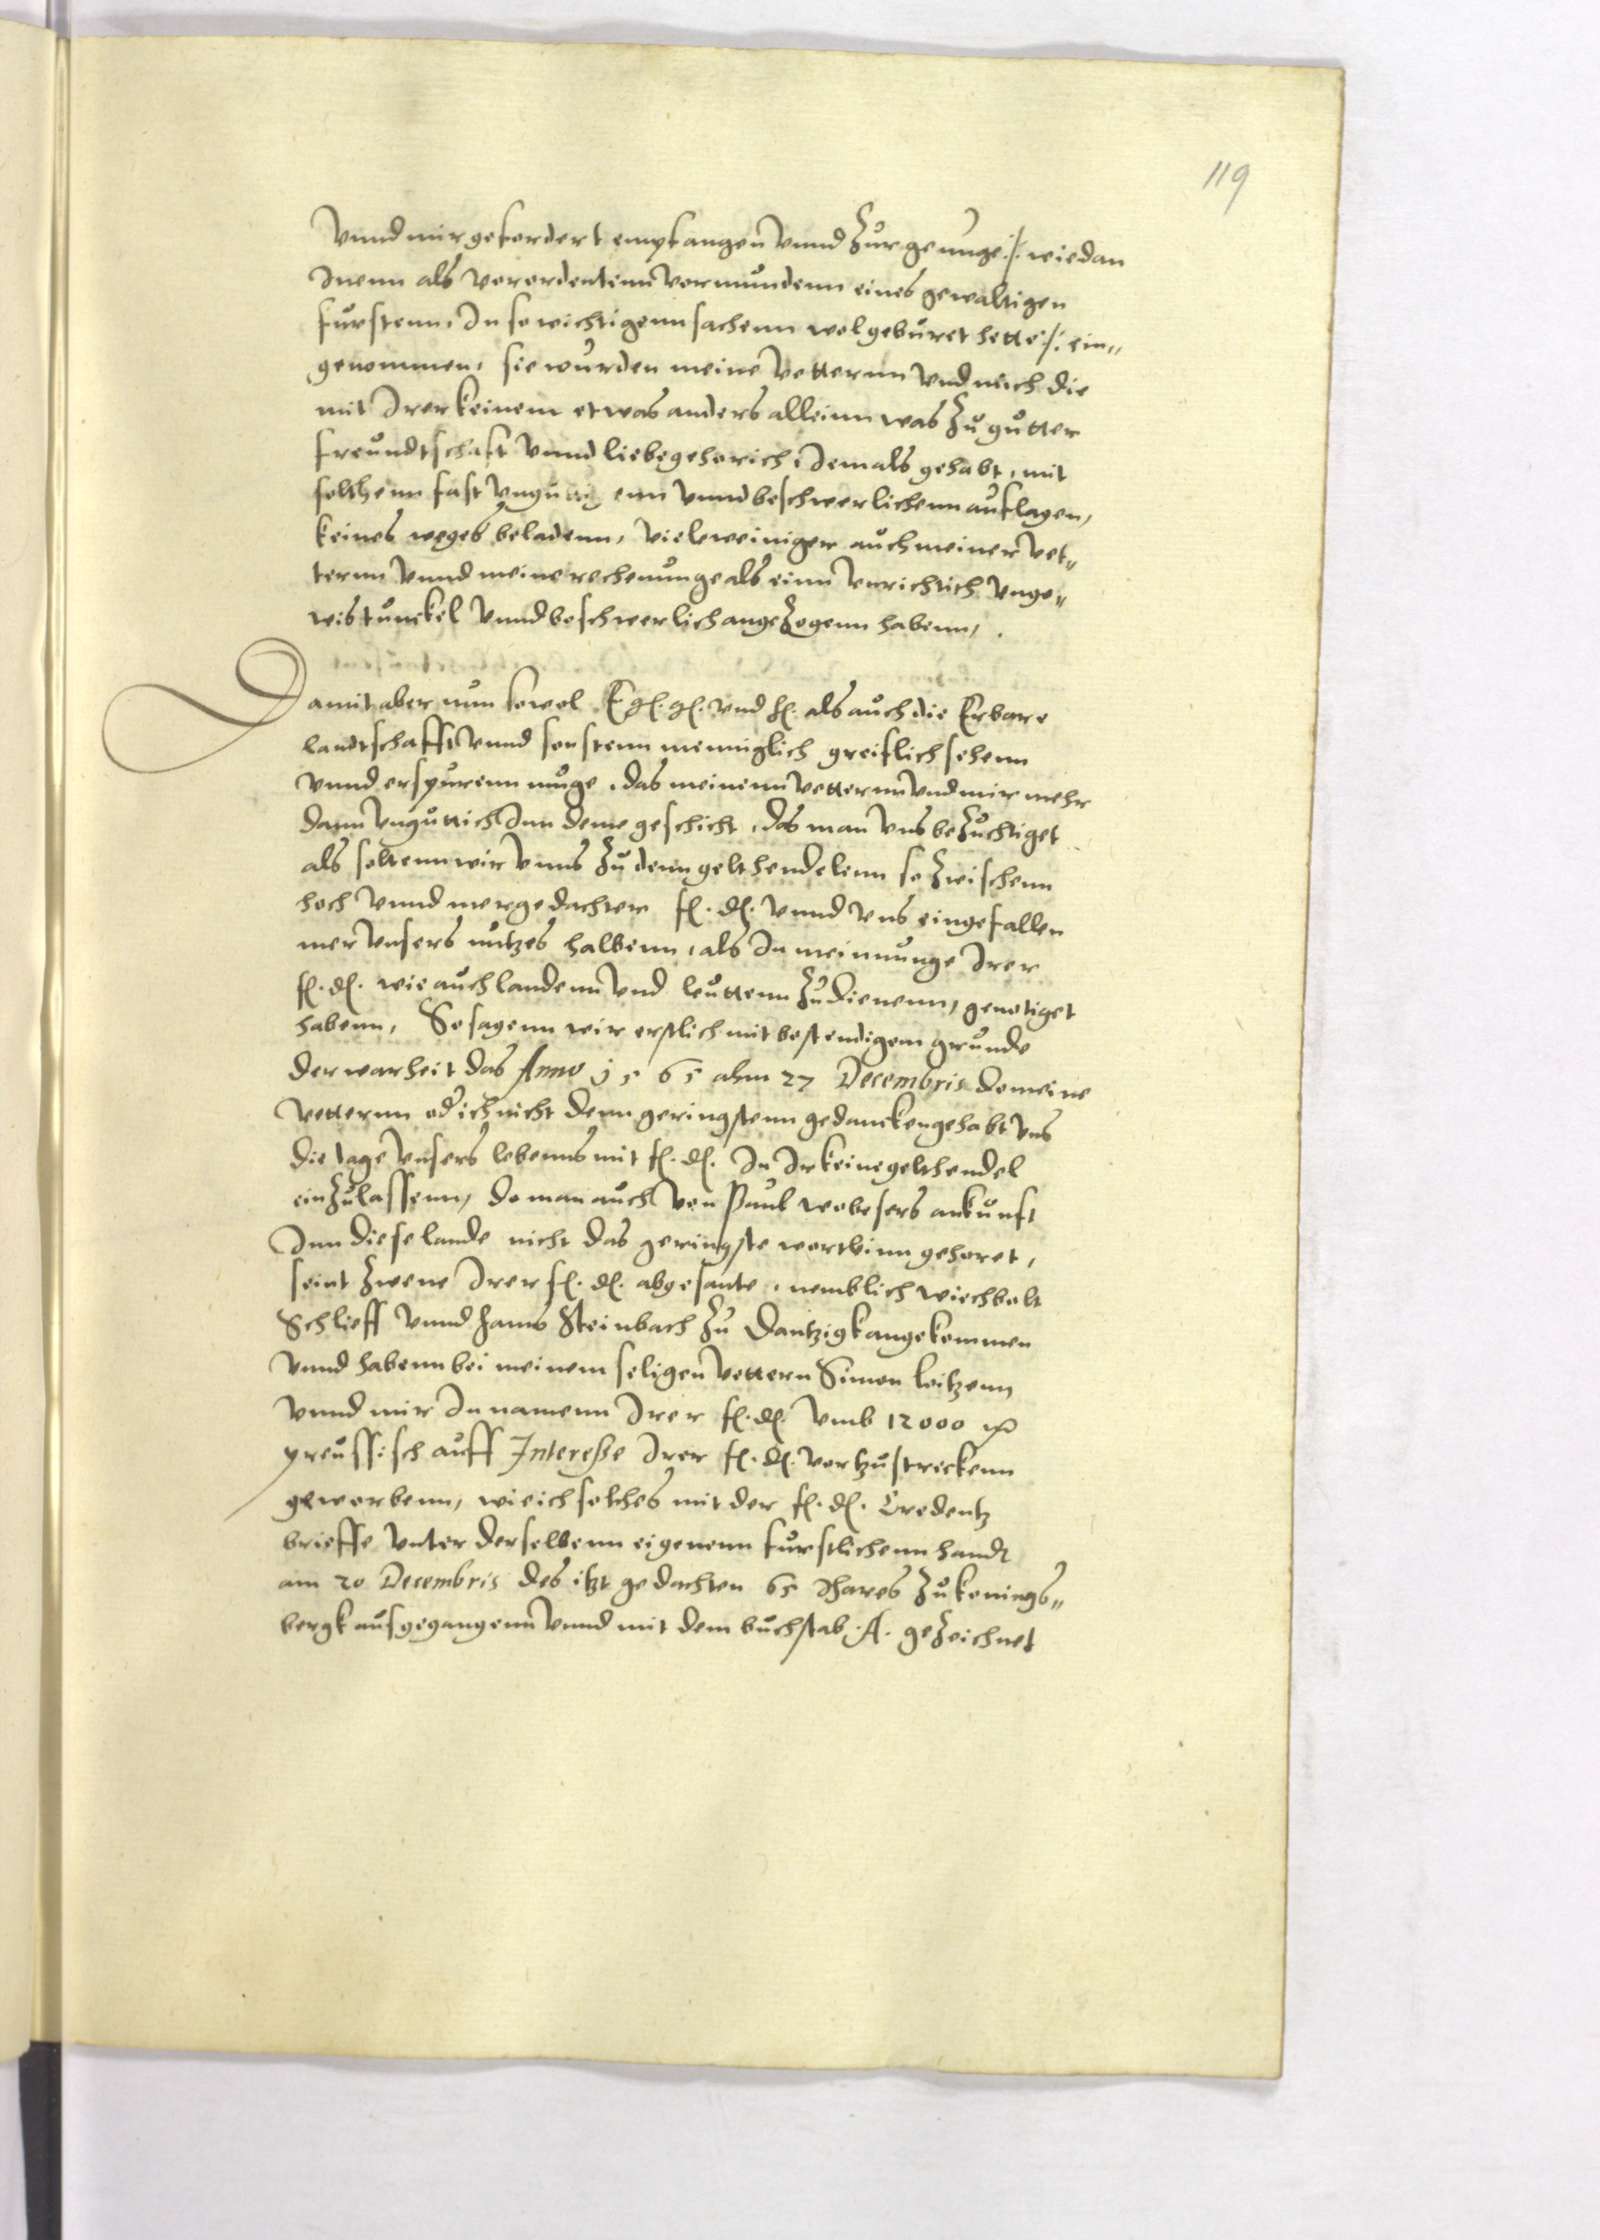 119
Vnnd mir gefordert empfangen vnnd zur genunge /: wie dan
Inenn als verordentenn vormundenn eines gewaltigen
furstenn, In so wichtigenn sachenn wol geburet hette :/ ein„
genommen, sie wurden meine vetternn vnd mich die
mit Irer keinem etwas anders alleinn was zu gutter
freundtschaft vnnd liebe gehorich, Jemals gehabt, mit
solchenn fast vnguttigenn vnnd beschwerlichenn auflagen,
keines weges beladenn, viel weiniger auch meiner vet„
ternn vnnd meine rechenunge als einn vnrichtich vnge„
wis tunckel vnnd beschwerlich angezogenn habenn,
Damit aber nun sowol E g. g. vnd h. als auch die Erbare
landtschafft vnnd sonstenn menniglich greiflich sehenn
vnnd erspurenn muge, das meinenn vetternn vnd mir mehr
dann vnguttich Inn deme geschicht, das man vns bezuchtiget
als soltenn wir vnns zu denn gelthendelenn so zwischenn
hoch vnnd mergedachter f. d. vnnd vns eingefallen
mer vnsers nutzes halbenn, als In meinnunge Irer
f. d. wie auch landenn vnd leuttenn zu dienenn, genotiget
habenn, So sagenn wir erstlich mit bestendigem grunde
der warheit das Anno 1565 ahm 27 Decembris do meine
vetternn od ich nicht denn geringstenn gedancken gehabt vns
die tage vnsers lebenns mit f. d. In Irkeine gelthendel
einzulassenn, do man auch von Paul wobesers ankunft
Inn diese lande nicht das geringste wortlinn gehoret,
seint zwene Irer f. d. abgesante, nemblich wiechbolt
Schlieff vnnd Hanns Steinbach zu Dantzigk angekommen
vnnd habenn bei meinem seligen vettern Simon loitzenn
vnnd mir In namenn Irer f. d. vmb 12000
preussisch auff Interesse Irer f. d. vortzustreckenn
geworbenn, wie ich solches mit der f. d. Credentz
brieffe vnter derselbenn eigenenn furstlichenn handt
am 20 Decembris des itzt gedachten 65 Ihares zu konings„
bergk ausgegangenn vnnd mit dem buchstab .A. gezeichnet